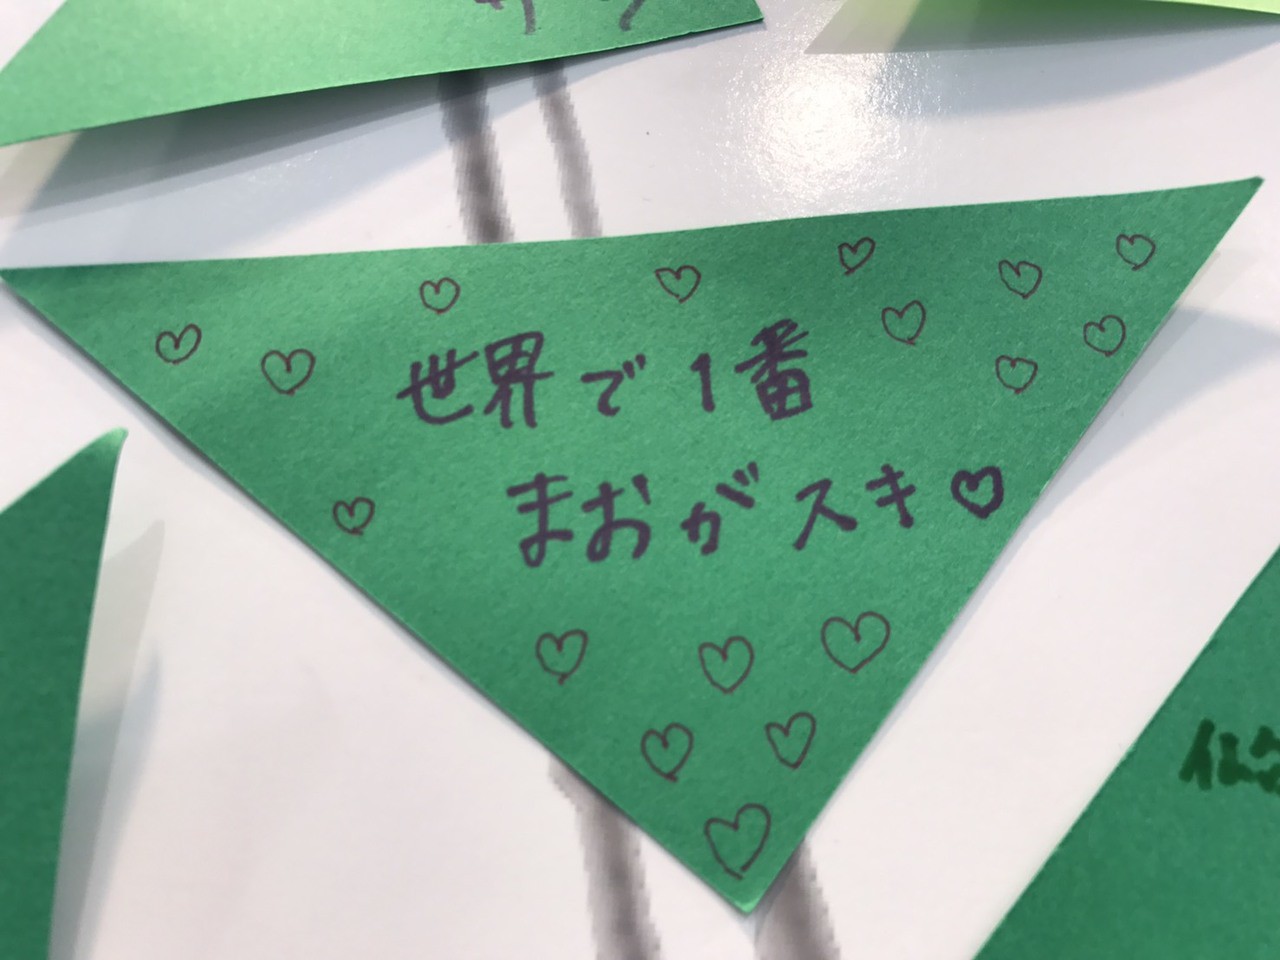 世界で1番
まおがスキ♡